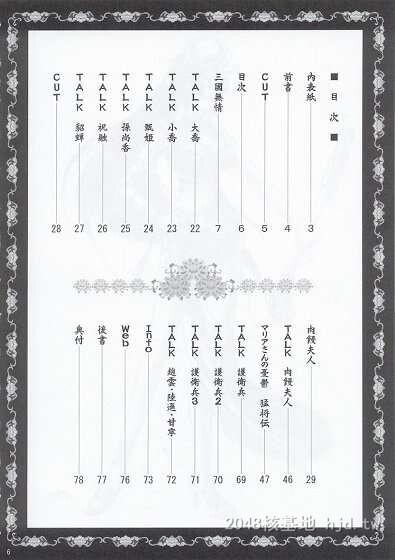 ■ 目 次 ■
内表紙 3
前書 4
CUT 5
目次 6
三國無情 7
TALK 大喬 22
TALK 小喬 23
TALK 甄姫 24
TALK 孫尚香 25
TALK 祝融 26
TALK 貂蝉 27
CUT 28
肉饅夫人 29
TALK 肉饅夫人 46
マリアさんの憂鬱 猛将伝 47
TALK 護衛兵 69
TALK 護衛兵2 70
TALK 護衛兵3 71
TALK 趙雲・陸遜・甘寧 72
Info 73
Web 76
後書 77
奥付 78
6
2048核基地 hjd.tw